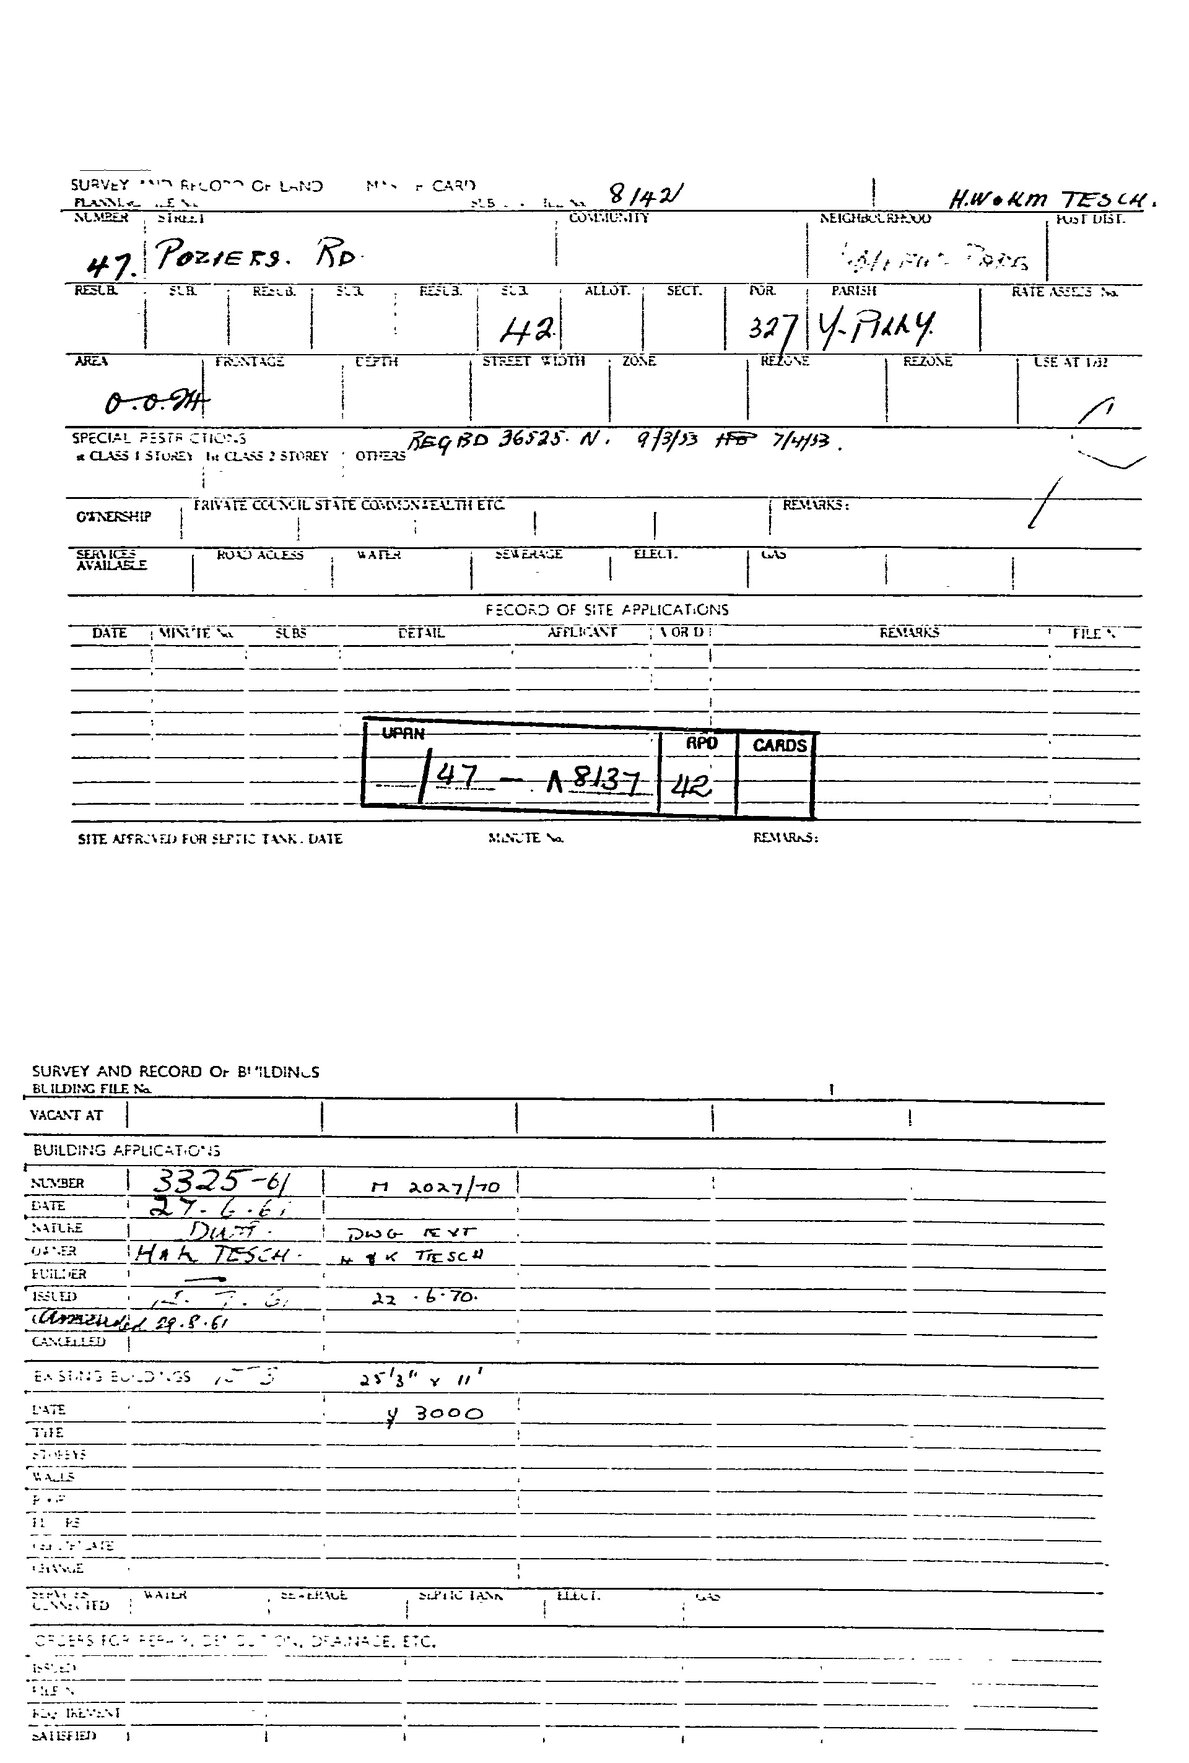 SURVEY AND RECORD OF LAND MASTER CARD
PLANNING FILE No. 8/42/ H.W & KM TESCH.
NUMBER STREET COMMUNITY NEIGHBOURHOOD POST DIST.
47. POZIERS. RD.
RESUB. SUB. RESUB. SUB. RESUB. SUB. ALLOT. SECT. POR. PARISH RATE ASSESS No.
42. 327 Y-PILLY.
AREA FRONTAGE DEPTH STREET WIDTH ZONE REZONE REZONE USE AT
0.0.24
SPECIAL RESTRICTIONS REGBD 36525. N. 9/3/53 7/4/53.
1st CLASS 1 STOREY 1st CLASS 2 STOREY OTHERS
OWNERSHIP PRIVATE COUNCIL STATE COMMONWEALTH ETC. REMARKS:
SERVICES AVAILABLE ROAD ACCESS WATER SEWERAGE ELECT. GAS
RECORD OF SITE APPLICATIONS
DATE MINUTE No. SUBS DETAIL APPLICANT A OR D REMARKS FILE N
UPRN RPD CARDS
/47 - A8137 42
SITE APPROVED FOR SEPTIC TANK. DATE MINUTE No. REMARKS:
SURVEY AND RECORD OF BUILDINGS
BUILDING FILE No.
VACANT AT
BUILDING APPLICATIONS
NUMBER 3325-61 M 2027/70
DATE 27.6.61
NATURE DWG EXT
OWNER H & K TESCH. H & K TESCH
BUILDER
ISSUED 22.6.70.
Amended 29.8.61
CANCELLED
EXISTING BUILDINGS 25'3" x 11'
DATE 3000
TYPE
STOREYS
WALLS
ROOF
FLOORS
CERTIFICATE
CHANGE
SERVICES CONNECTED WATER SEWERAGE SEPTIC TANK ELECT. GAS
ORDERS FOR REPAIR, DEMOLITION, DRAINAGE, ETC.
ISSUED
FILE N
REQUIREMENT
SATISFIED